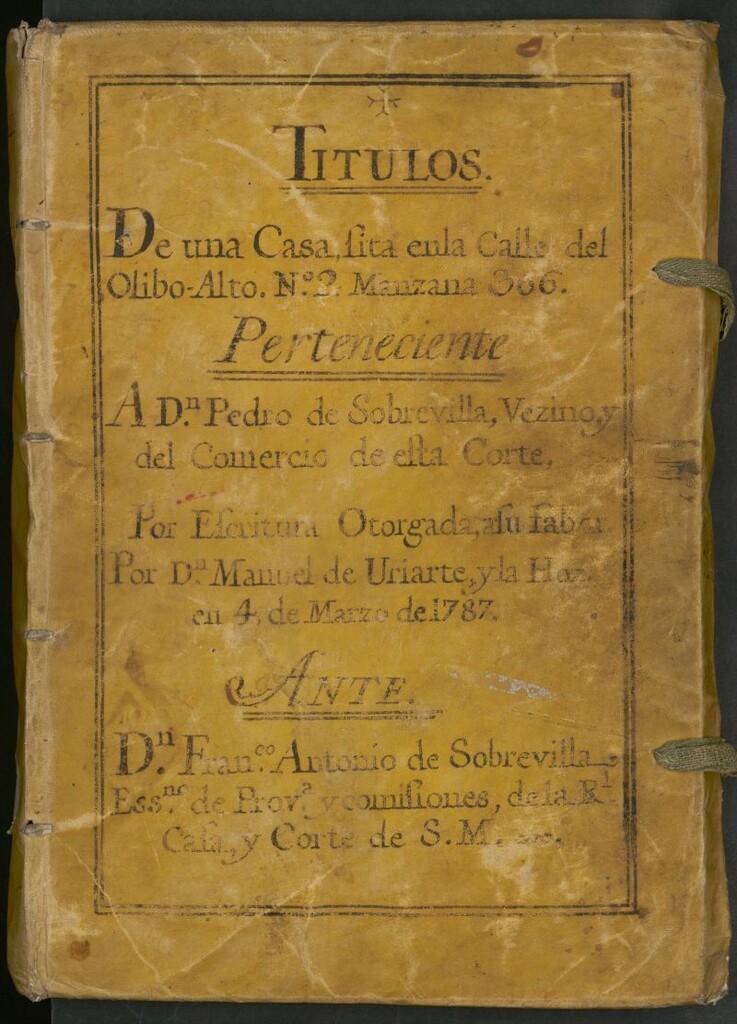 TITULOS.
De una Casa, ſita enla Calle del
Olibo-Alto. N.º 2. Manzana 366.
Perteneciente
A D.ⁿ Pedro de Sobrevilla, Vezino, y
del Comercio de eſta Corte,
Por Eſcritura Otorgada, aſu fabor
Por D.ⁿ Manuel de Uriarte, y la Hoz.
en 4, de Marzo de 1787.
ANTE.
D.ⁿ Fran.ᶜᵒ Antonio de Sobrevilla
Ess.ⁿᵒ de Prov.ª y comiſiones, de la R.ˡ
Caſa, y Corte de S.M.